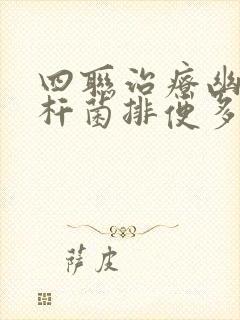 四聯治療幽
杆菌排便多
萨皮